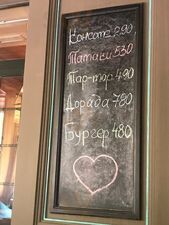 Консоме 290
Татаки 530
Тар-тар 490
Дорада 780
Бургер 480